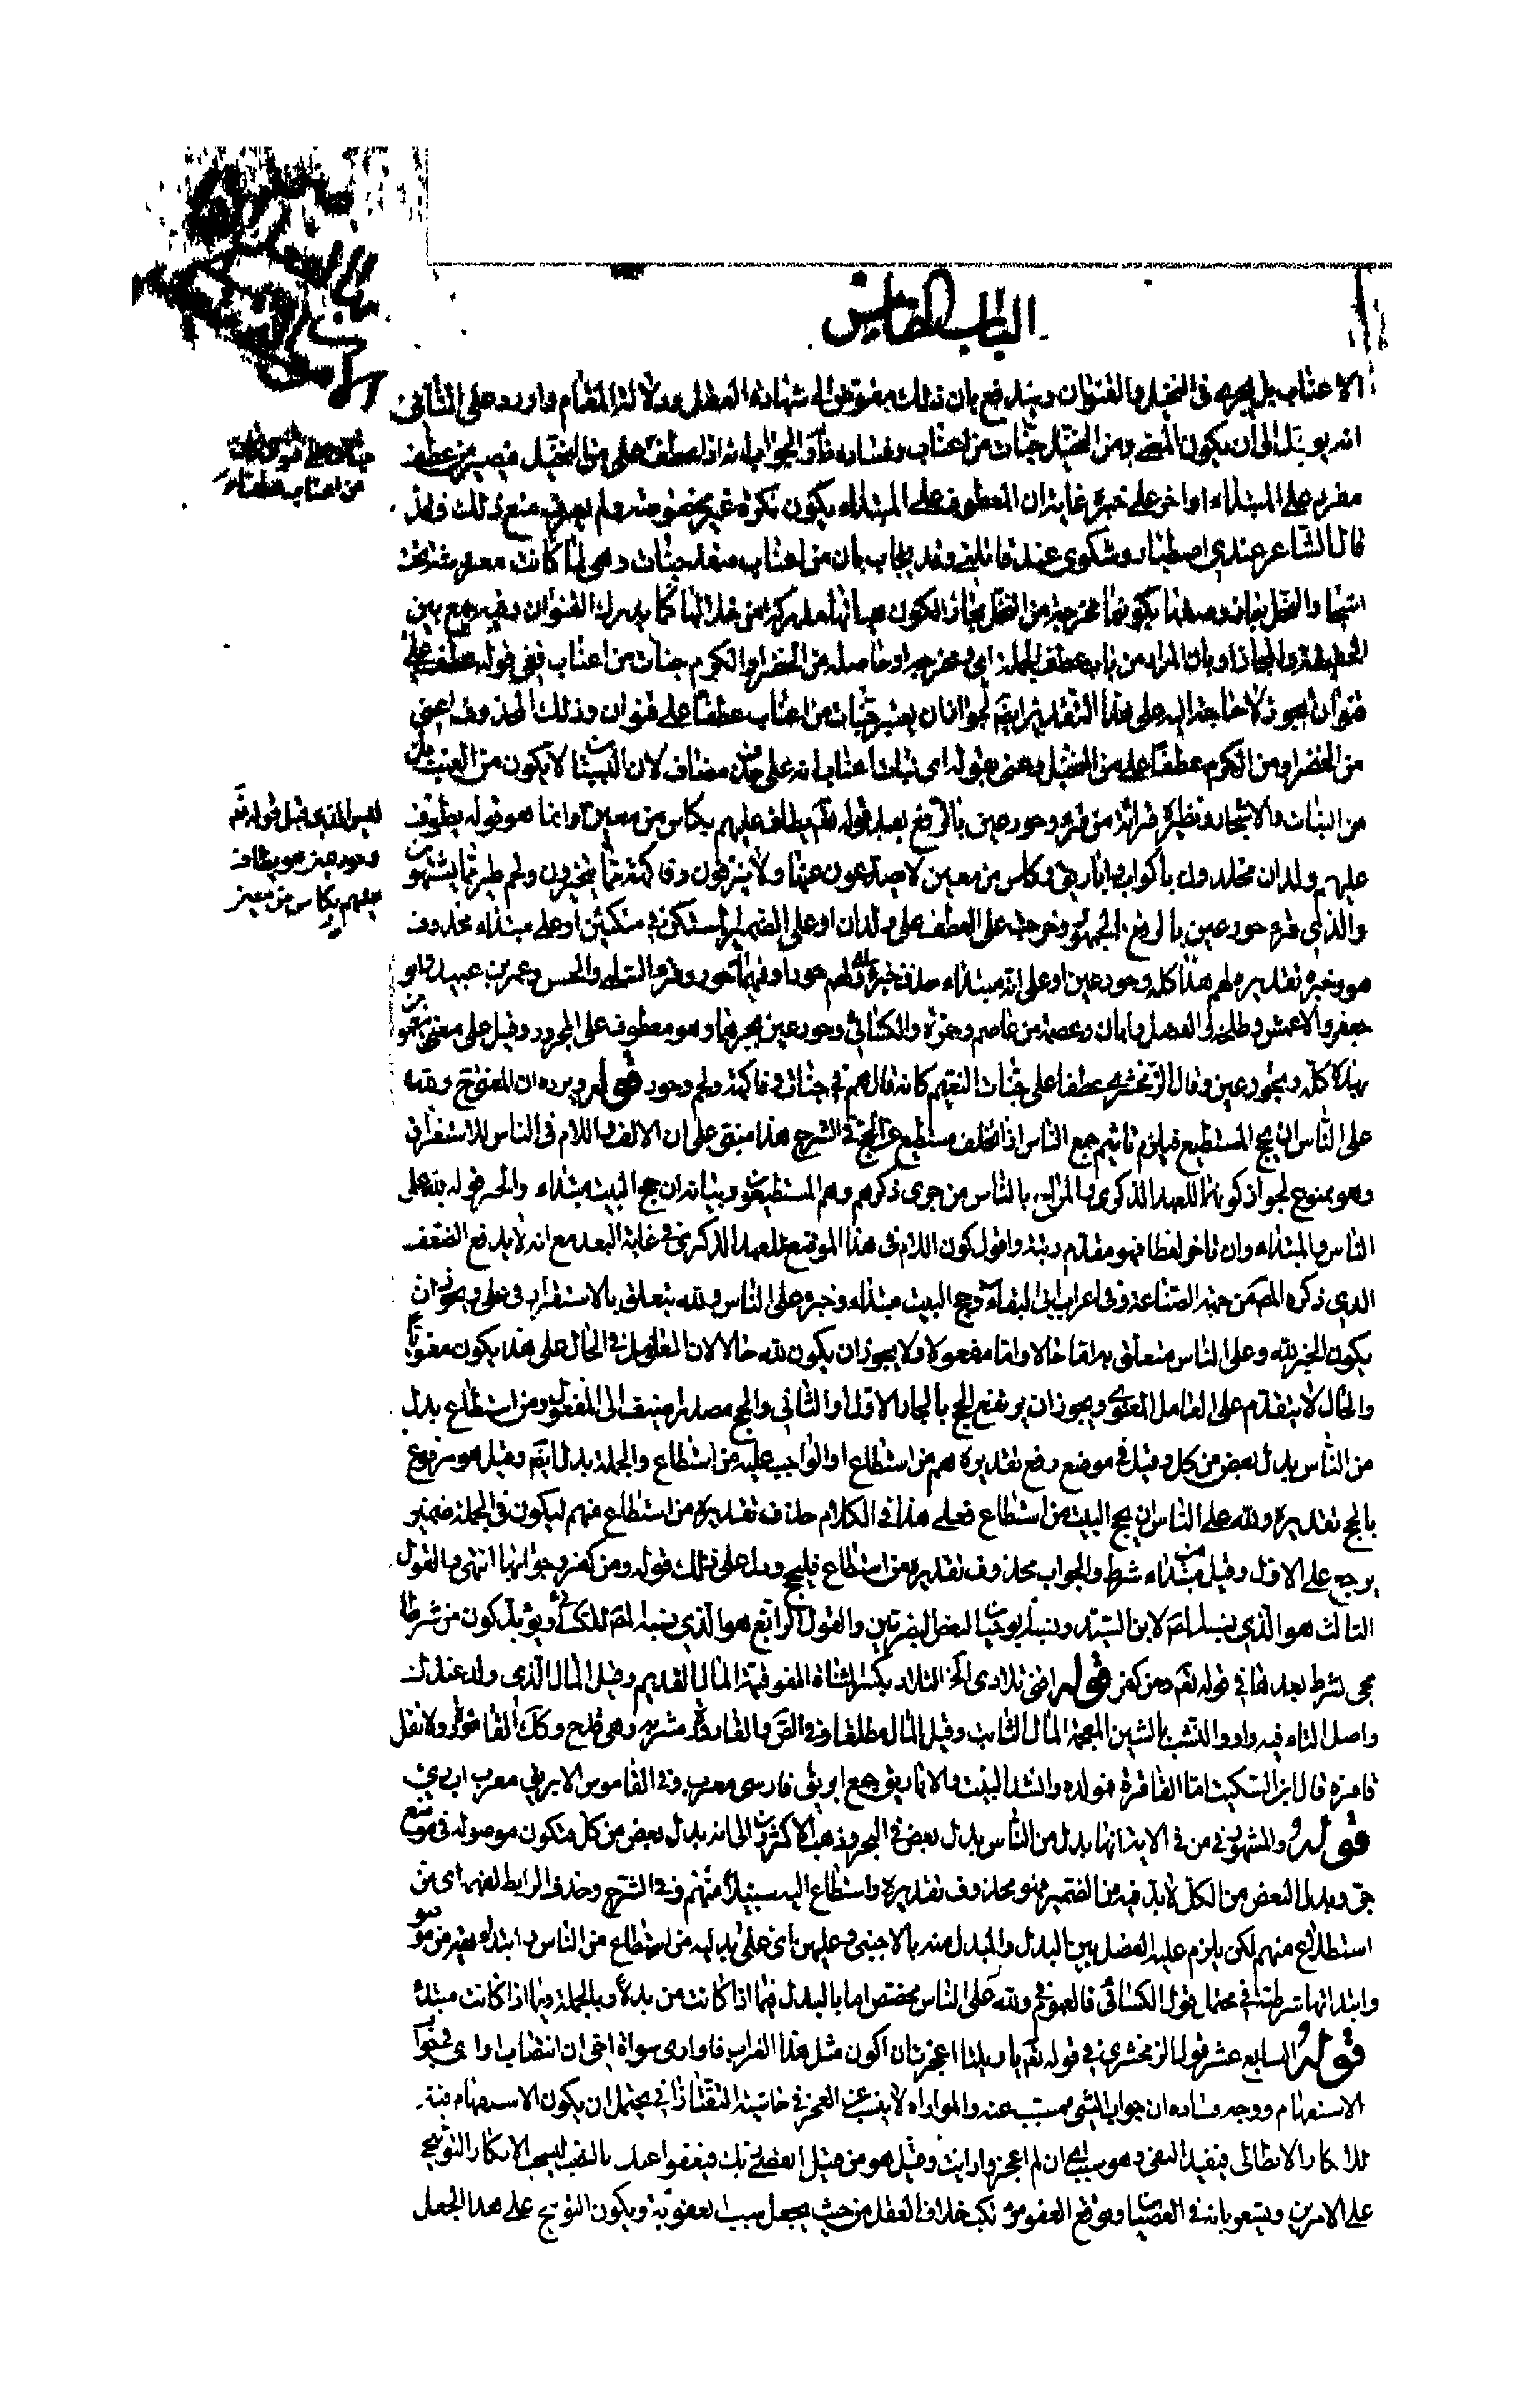 الباب الخامس
الاعناب بل يجره في النخيل والقنوان ويندفع بان ذلك مفوض الى شهادة العقل ودلالة المقام واورد على الثاني
انه يؤيل الى ان يكون المعنى ومن النخيل جنات من اعناب وفساده ظ والجواب انه اذا عطف على من النخيل فيصير من عطف
مفرد على المبتداء واخر على خبره غايته ان المعطوف على المبتداء يكون نكرة غير مخصوصة ولم يعرف منع ذلك وقد
قال الشاعر عندي اصطبار وشكوى عند قاتلتي وقد يجاب بان من اعناب صفة جنات وهي لما كانت معروشة تحت
اشجار النخل جاز وصفها بكونها مخرجة من النخل مجازا لكون
او بان المراد من باب عطف الجملة اي ومخرجة او حاصلة من الخضر او الكرم جنات من اعناب ففي قوله عطف على
قنوان تجوز لا حاجة اليه على هذا التقدير ايضا لجواز ان يعتبر جنات من اعناب عطفا على قنوان وذلك المحذوف اعني
من الخضر او من الكرم عطفا على من النخيل وعنى بقوله اي نبات اعناب انه على حذف مضاف لان الجنة لا يكون من العنب بل
من النبات والاشجار ونظيره قراءة من قرء وحور عين بالرفع بعد قوله تعم يطاف عليهم بكاس من معين وانما هو قوله يطوف
عليهم ولدان مخلدون باكواب واباريق وكاس من معين لا يصدعون عنها ولا ينزفون وفاكهة مما يتخيرون ولحم طير مما يشتهون
والذي قرء حور عين بالرفع الجمهور وخرجت على العطف على ولدان او على الضمير المستكن في متكئين او على مبتداء محذوف
هو وخبره تقديره لهم هذا كله وحور عين او على انه مبتداء حذف خبره اي ولهم حور او فيهما حور وقرء السلمي والحسن وعمر بن عبيد وابو
جعفر والاعمش وطلحة والمفضل وابان وعصمة عن عاصم وحمزة والكسائي وحور عين بجرهما وهو معطوف على المجرور وقيل على معنى ينعمون
بهذا كله وبحور عين وقال الزمخشري عطفا على جنات النعيم كانه قال هم في جنات وفاكهة ولحم وحور قوله ويرده ان المعنى ح ولله
على الناس ان يحج المستطيع فيلزم تاثيم جميع الناس اذا تخلف مستطيع عن الحج في الشرح هذا مبني على ان الالف واللام في الناس للاستغراق
وهو ممنوع لجواز كونها للعهد الذكرى والمراد بالناس من جرى ذكرهم وهم المستطيعون وبيانه ان حج البيت مبتداء والخبر قوله لله على
الناس والمبتداء وان تاخر لفظا فهو مقدم رتبة واقول كون اللام في هذا الموضع للعهد الذكرى في غاية البعد مع انه لا يدفع الضعف
الذي ذكره المص من جهة الصناعة وفي اعراب ابي البقاء وحج البيت مبتداء وخبره على الناس ولله يتعلق بالاستقرار في على ويجوز ان
يكون الخبر لله وعلى الناس متعلق به اما حالا واما مفعولا ولا يجوز ان يكون لله حالا لان العامل في الحال على هذا يكون معنويا
والحال لا يتقدم على العامل المعنوي ويجوز ان يرتفع الحج بالجار الاول او الثاني والحج مصدر اضيف الى المفعول ومن استطاع بدل
من الناس بدل بعض من كل وقيل في موضع رفع تقديره هم من استطاع او الواجب عليه من استطاع والجملة بدل ايضا وقيل هو مرفوع
بالحج تقديره ولله على الناس ان يحج البيت من استطاع فعلى هذا في الكلام حذف تقديره من استطاع منهم ليكون في الجملة ضمير
يرجع على الاول وقيل من مبتداء شرط والجواب محذوف تقديره من استطاع فليحج ودل على ذلك قوله ومن كفر وجوابها انتهى والقول
الثالث هو الذي نسبه المص لابن السيد ونسبه ابو حيان لبعض البصريين والقول الرابع هو الذي نسبه المص للكسائي ويؤيد كون من شرطا
مجئ شرط بعدها في قوله تعم ومن كفر قوله افنى تلادى الخ التلاد بكسر المثناة الفوقية المال القديم وقيل المال الذي ولد عندك
واصل التاء فيه واو والنشب بالشين المعجمة المال الثابت وقيل المال مطلقا وفي الص والقارورة مشربة وهي قدح وكك القاقوزة ولا تقل
قاقزة قال ابن السكيت اما القاقزة فمولدة وانشد البيت والاباريق جمع ابريق فارسي معرب وفي القاموس الابريق معرب اب ري
قوله والمشهور في من في الاية انها بدل من الناس بدل بعض في البحر وذهب الاكثرون الى انه بدل بعض من كل فتكون موصولة في موضع
جر وبدل البعض من الكل لا بد فيه من الضمير فهو محذوف تقديره واستطاع اليه سبيلا منهم وفي الشرح وحذف الرابط لفهمه اي من
استطاع منهم لكن يلزم عليه الفصل بين البدل والمبدل منه بالاجنبي
وابتدائها شرطية في محتمل قول الكسائي فالعموم في ولله على الناس مختص اما بالبدل فيما اذا كانت من بدلا وبالجملة فيما اذا كانت مبتداء
قوله السابع عشر قول الزمخشري في قوله تعم يا ويلتا اعجزت ان اكون مثل هذا الغراب فاواري سواة اخي ان انتصاب اواري بجواب
الاستفهام ووجه فساده ان جواب الشئ مسبب عنه والمواراة لا يتسبب عن العجز في حاشية التفتازاني يحتمل ان يكون الاستفهام فيه
للانكار الابطالي فيفيد النفي وهو سبب اي ان لم اعجز واريت وقيل هو من قبيل اتعصي ربك فيعفو عنك بالنصب ليسحب الانكار التوبيخي
على الامرين ويشعر بانه في العصيان وتوقع العفو مرتكب خلاف العقل من حيث يجعل سبب العقوبة ويكون التوبيخ على هذا الجعل
من اعناب عطفا
ليس المذكور قبل قوله تعم
وحور عين هو يطاف
عليهم بكاس من معين